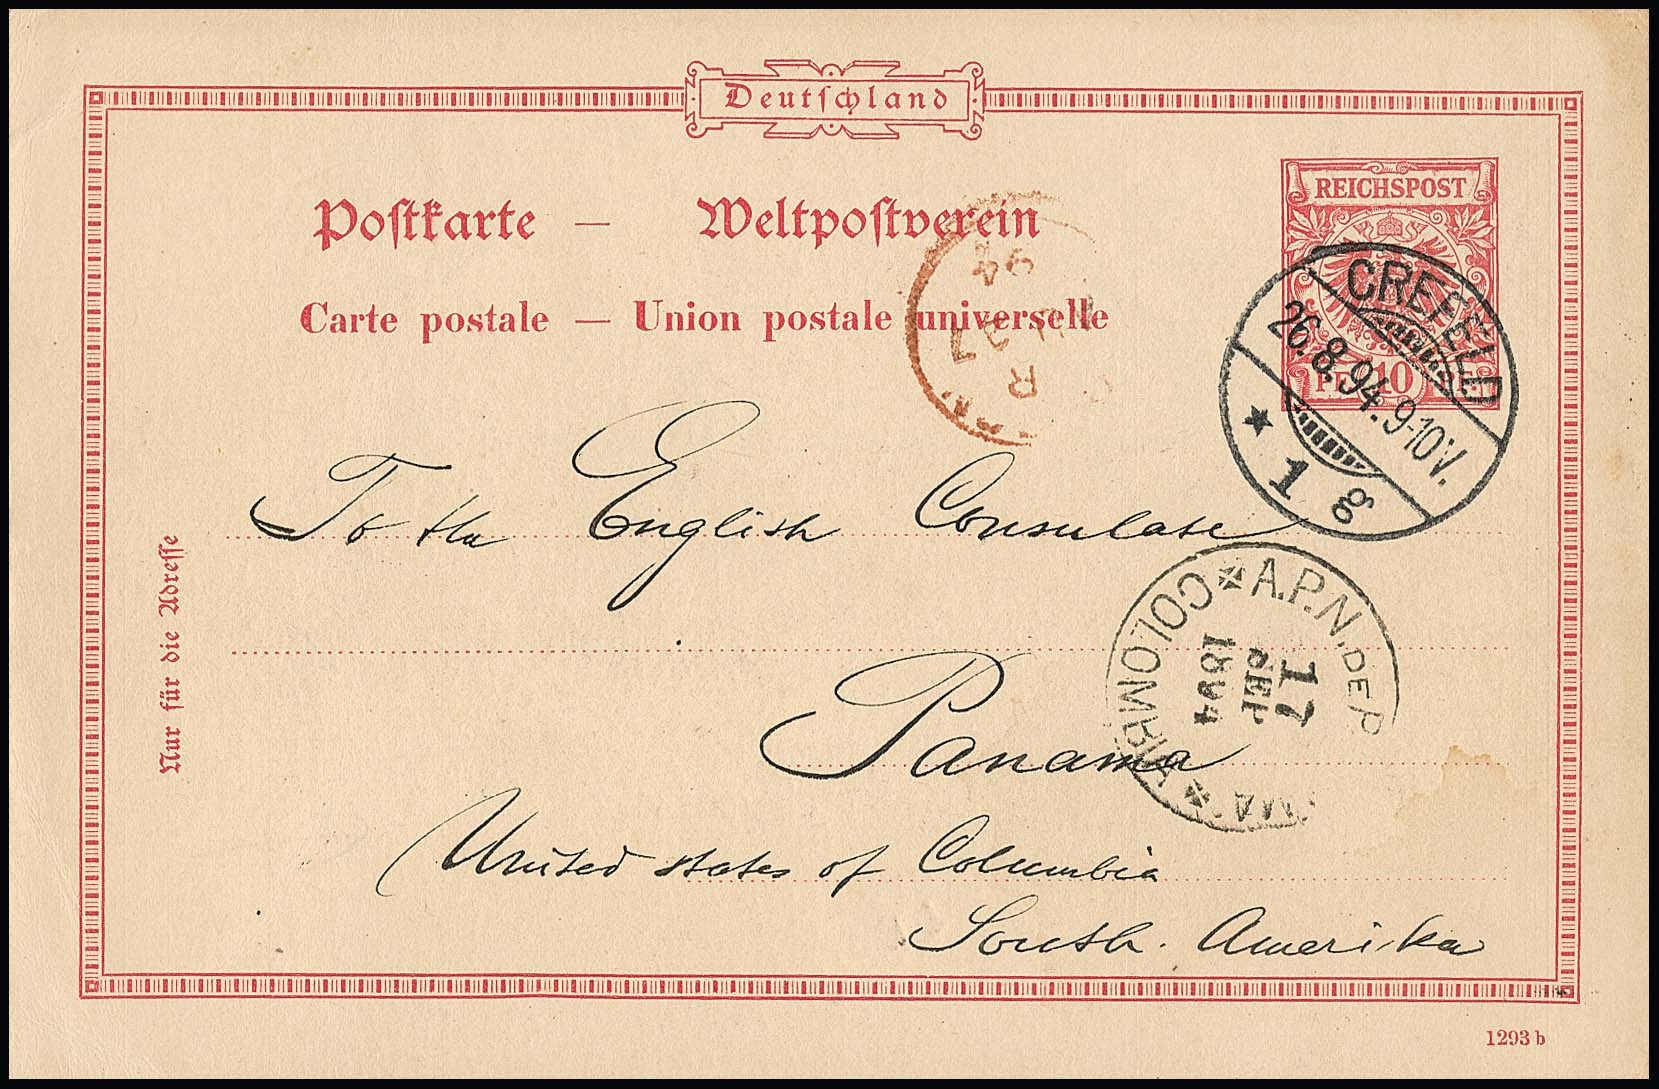 Deutschland
REICHSPOST
Postkarte — Weltpostverein
Carte postale — Union postale universelle
PF 10 PF.
CREFELD
26.8.94. 9-10V.
★ 1 g
94
27
R
To the English Consulate
Panama
United states of Columbia
South. Amerika
A.P.N. DEP
COLOMBIA
17
SEP
1894
Nur für die Adresse
1293 b